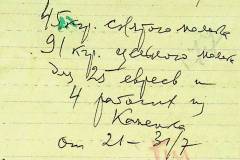 45 кгр. снятого молока
91 кгр. цельного молока
для 25 евреев и
4 рабочих из
Каменка
от 21 – 31/7